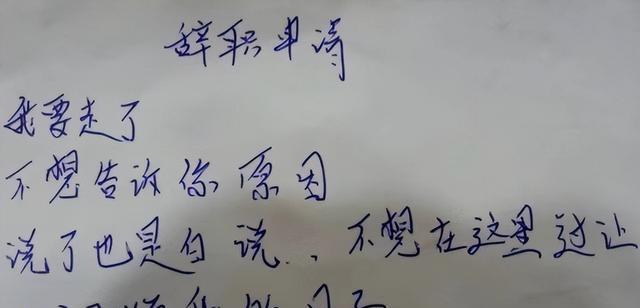 辞职申请
我要走了
不想告诉你原因
说了也是白说..不想在这里过让
的日子